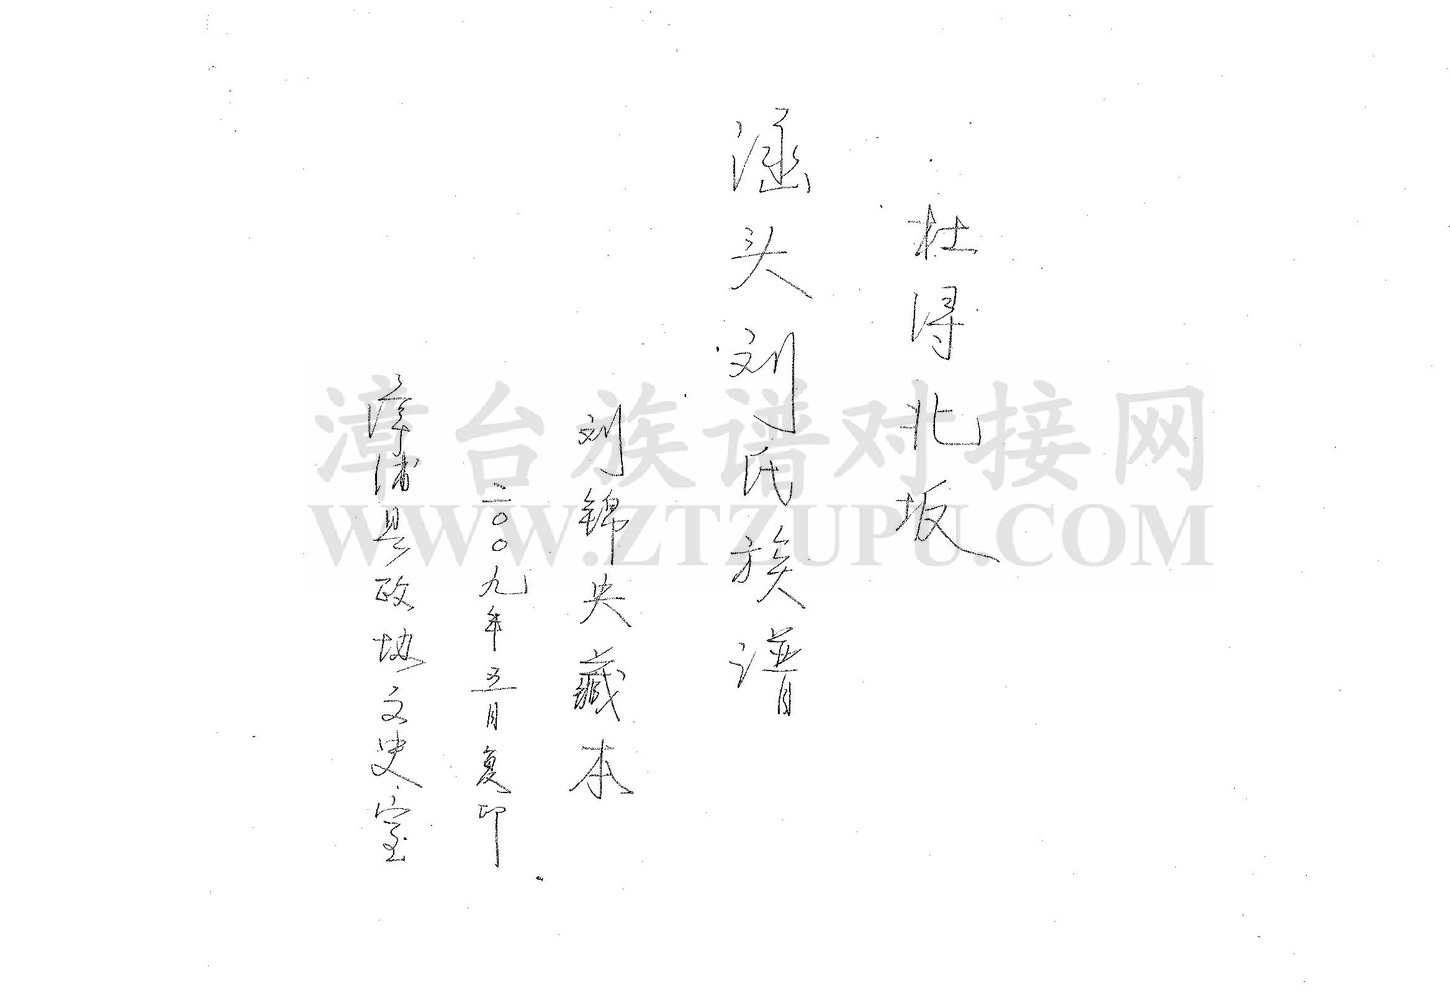 杜浔北坂
涵头刘氏族谱
刘锦央藏本
二00九年五月复印
漳浦县政协文史室
漳台族谱对接网
WWW.ZTZUPU.COM